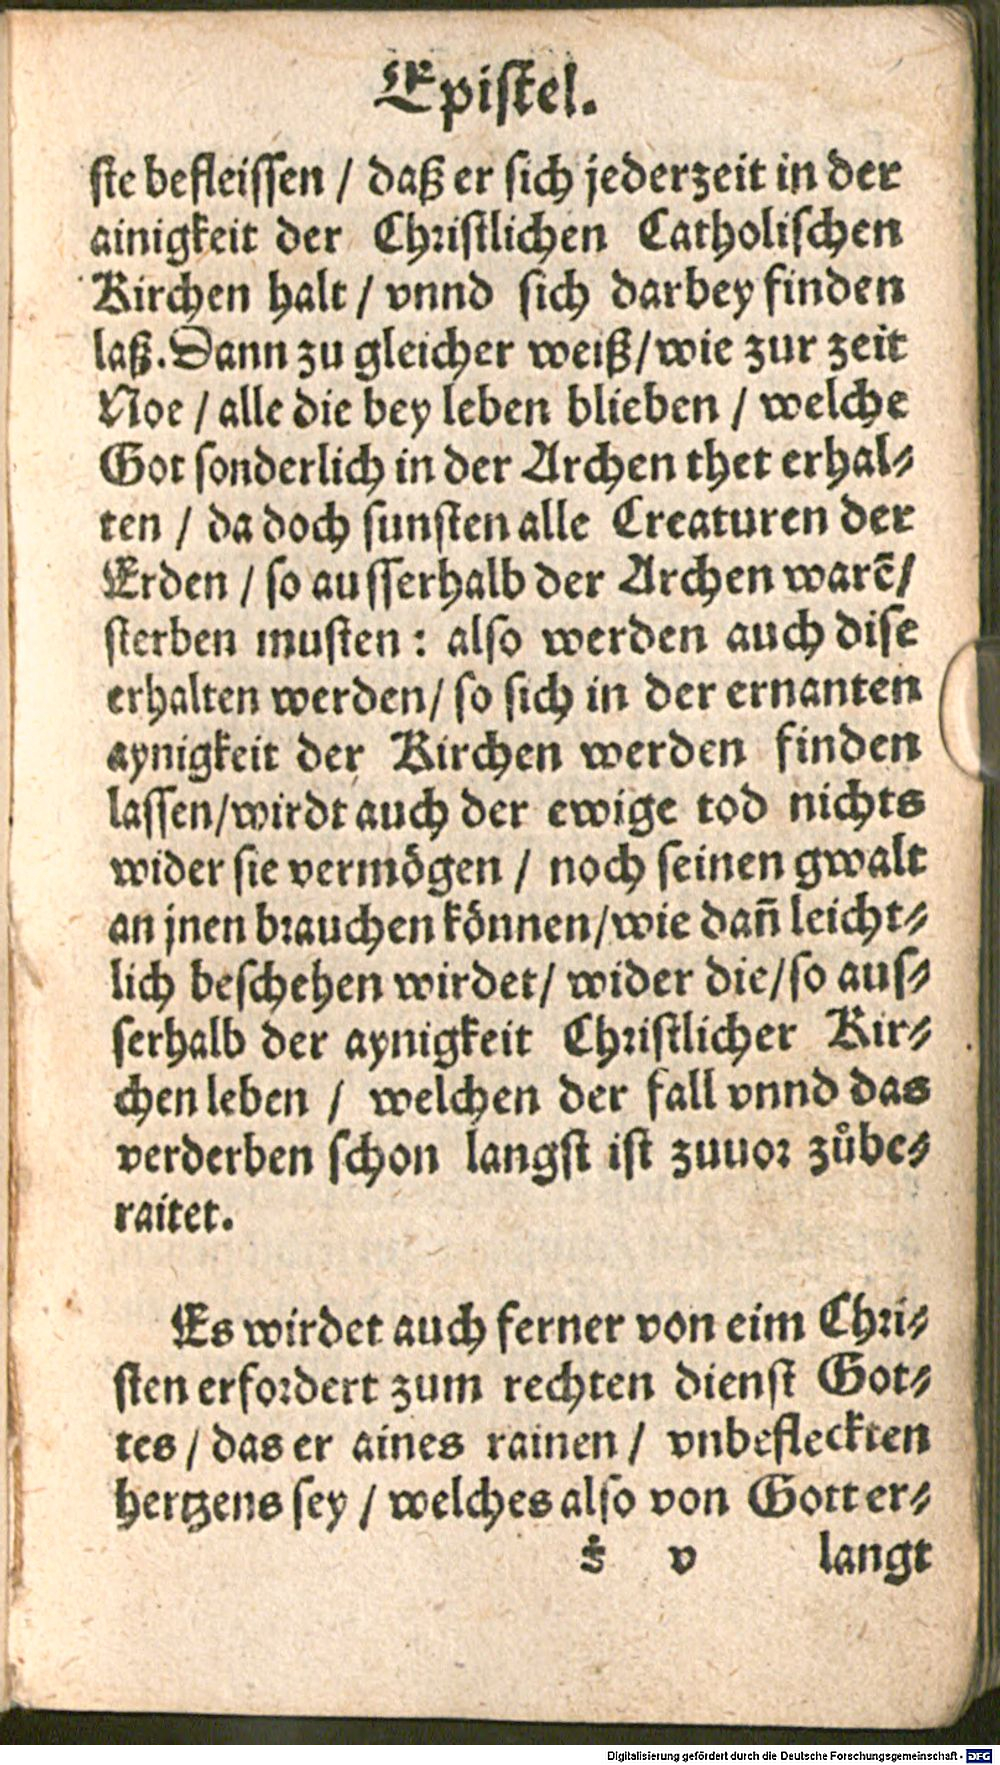 Epistel.
ste befleissen / daß er sich jederzeit in der
ainigkeit der Christlichen Catholischen
Kirchen halt / vnnd sich darbey finden
laß. Dann zu gleicher weiß / wie zur zeit
Noe / alle die bey leben blieben / welche
Got sonderlich in der Archen thet erhal-
ten / da doch sunsten alle Creaturen der
Erden / so ausserhalb der Archen warẽ /
sterben musten : also werden auch dise
erhalten werden / so sich in der ernanten
aynigkeit der Kirchen werden finden
lassen / wirdt auch der ewige tod nichts
wider sie vermögen / noch seinen gwalt
an jnen brauchen können / wie dañ leicht-
lich beschehen wirdet / wider die / so aus-
serhalb der aynigkeit Christlicher Kir-
chen leben / welchen der fall vnnd das
verderben schon langst ist zuuor zůbe-
raitet.
Es wirdet auch ferner von eim Chri-
sten erfordert zum rechten dienst Got-
tes / das er aines rainen / vnbefleckten
hertzens sey / welches also von Gott er-
v langt
Digitalisierung gefördert durch die Deutsche Forschungsgemeinschaft - DFG